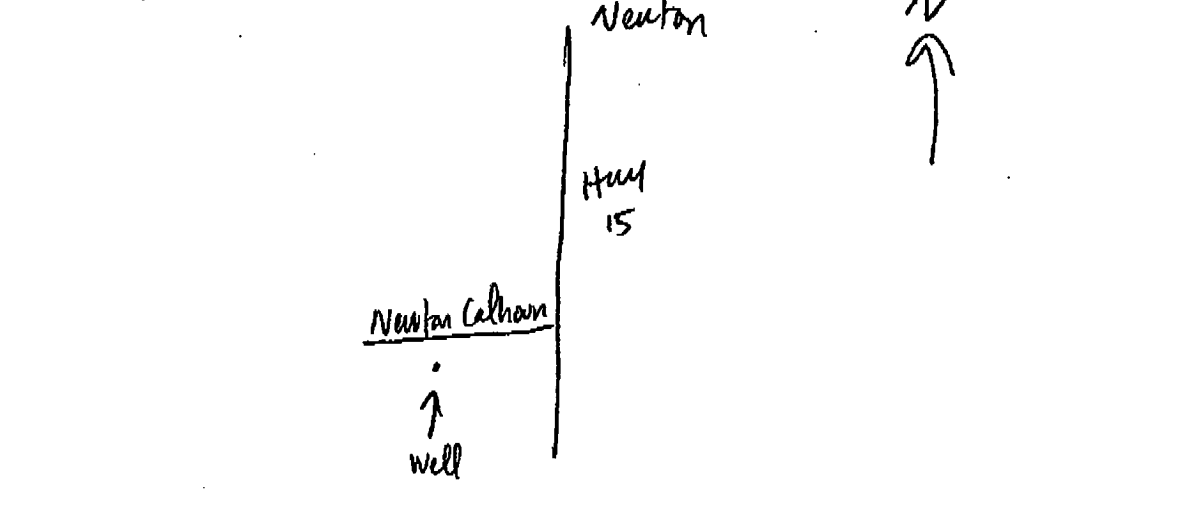 Newton
N
Hwy
15
Newton Calhoun
Well